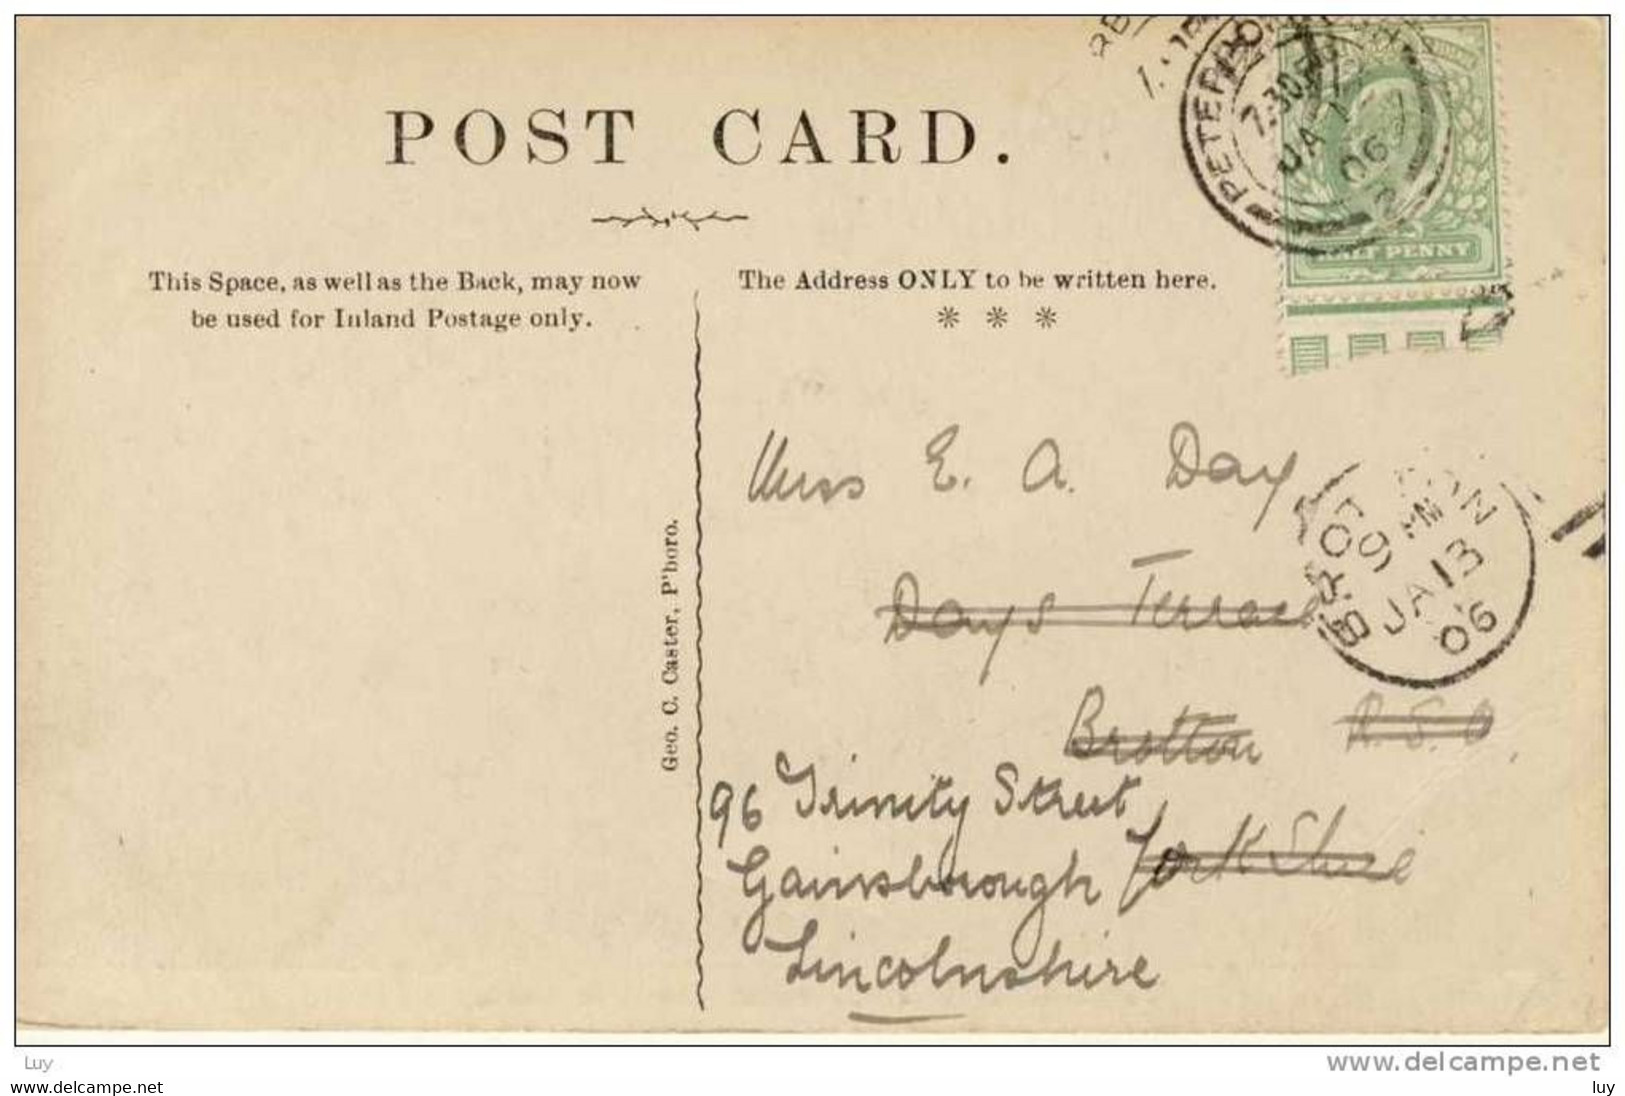 POST CARD.
This Space, as well as the Back, may now
be used for Inland Postage only.
The Address ONLY to be written here.
* * *
PETERBORO
7.30P
JA 1
06
2
HALF PENNY
Geo. C. Caster, P'boro.
Miss E. A. Day
Days Terrace
Brotton R.S.O.
Yorkshire
96 Trinity Street
Gainsborough
Lincolnshire
BROTTON
9 PM
JA 13
06
Luy
www.delcampe.net
www.delcampe.net
luy